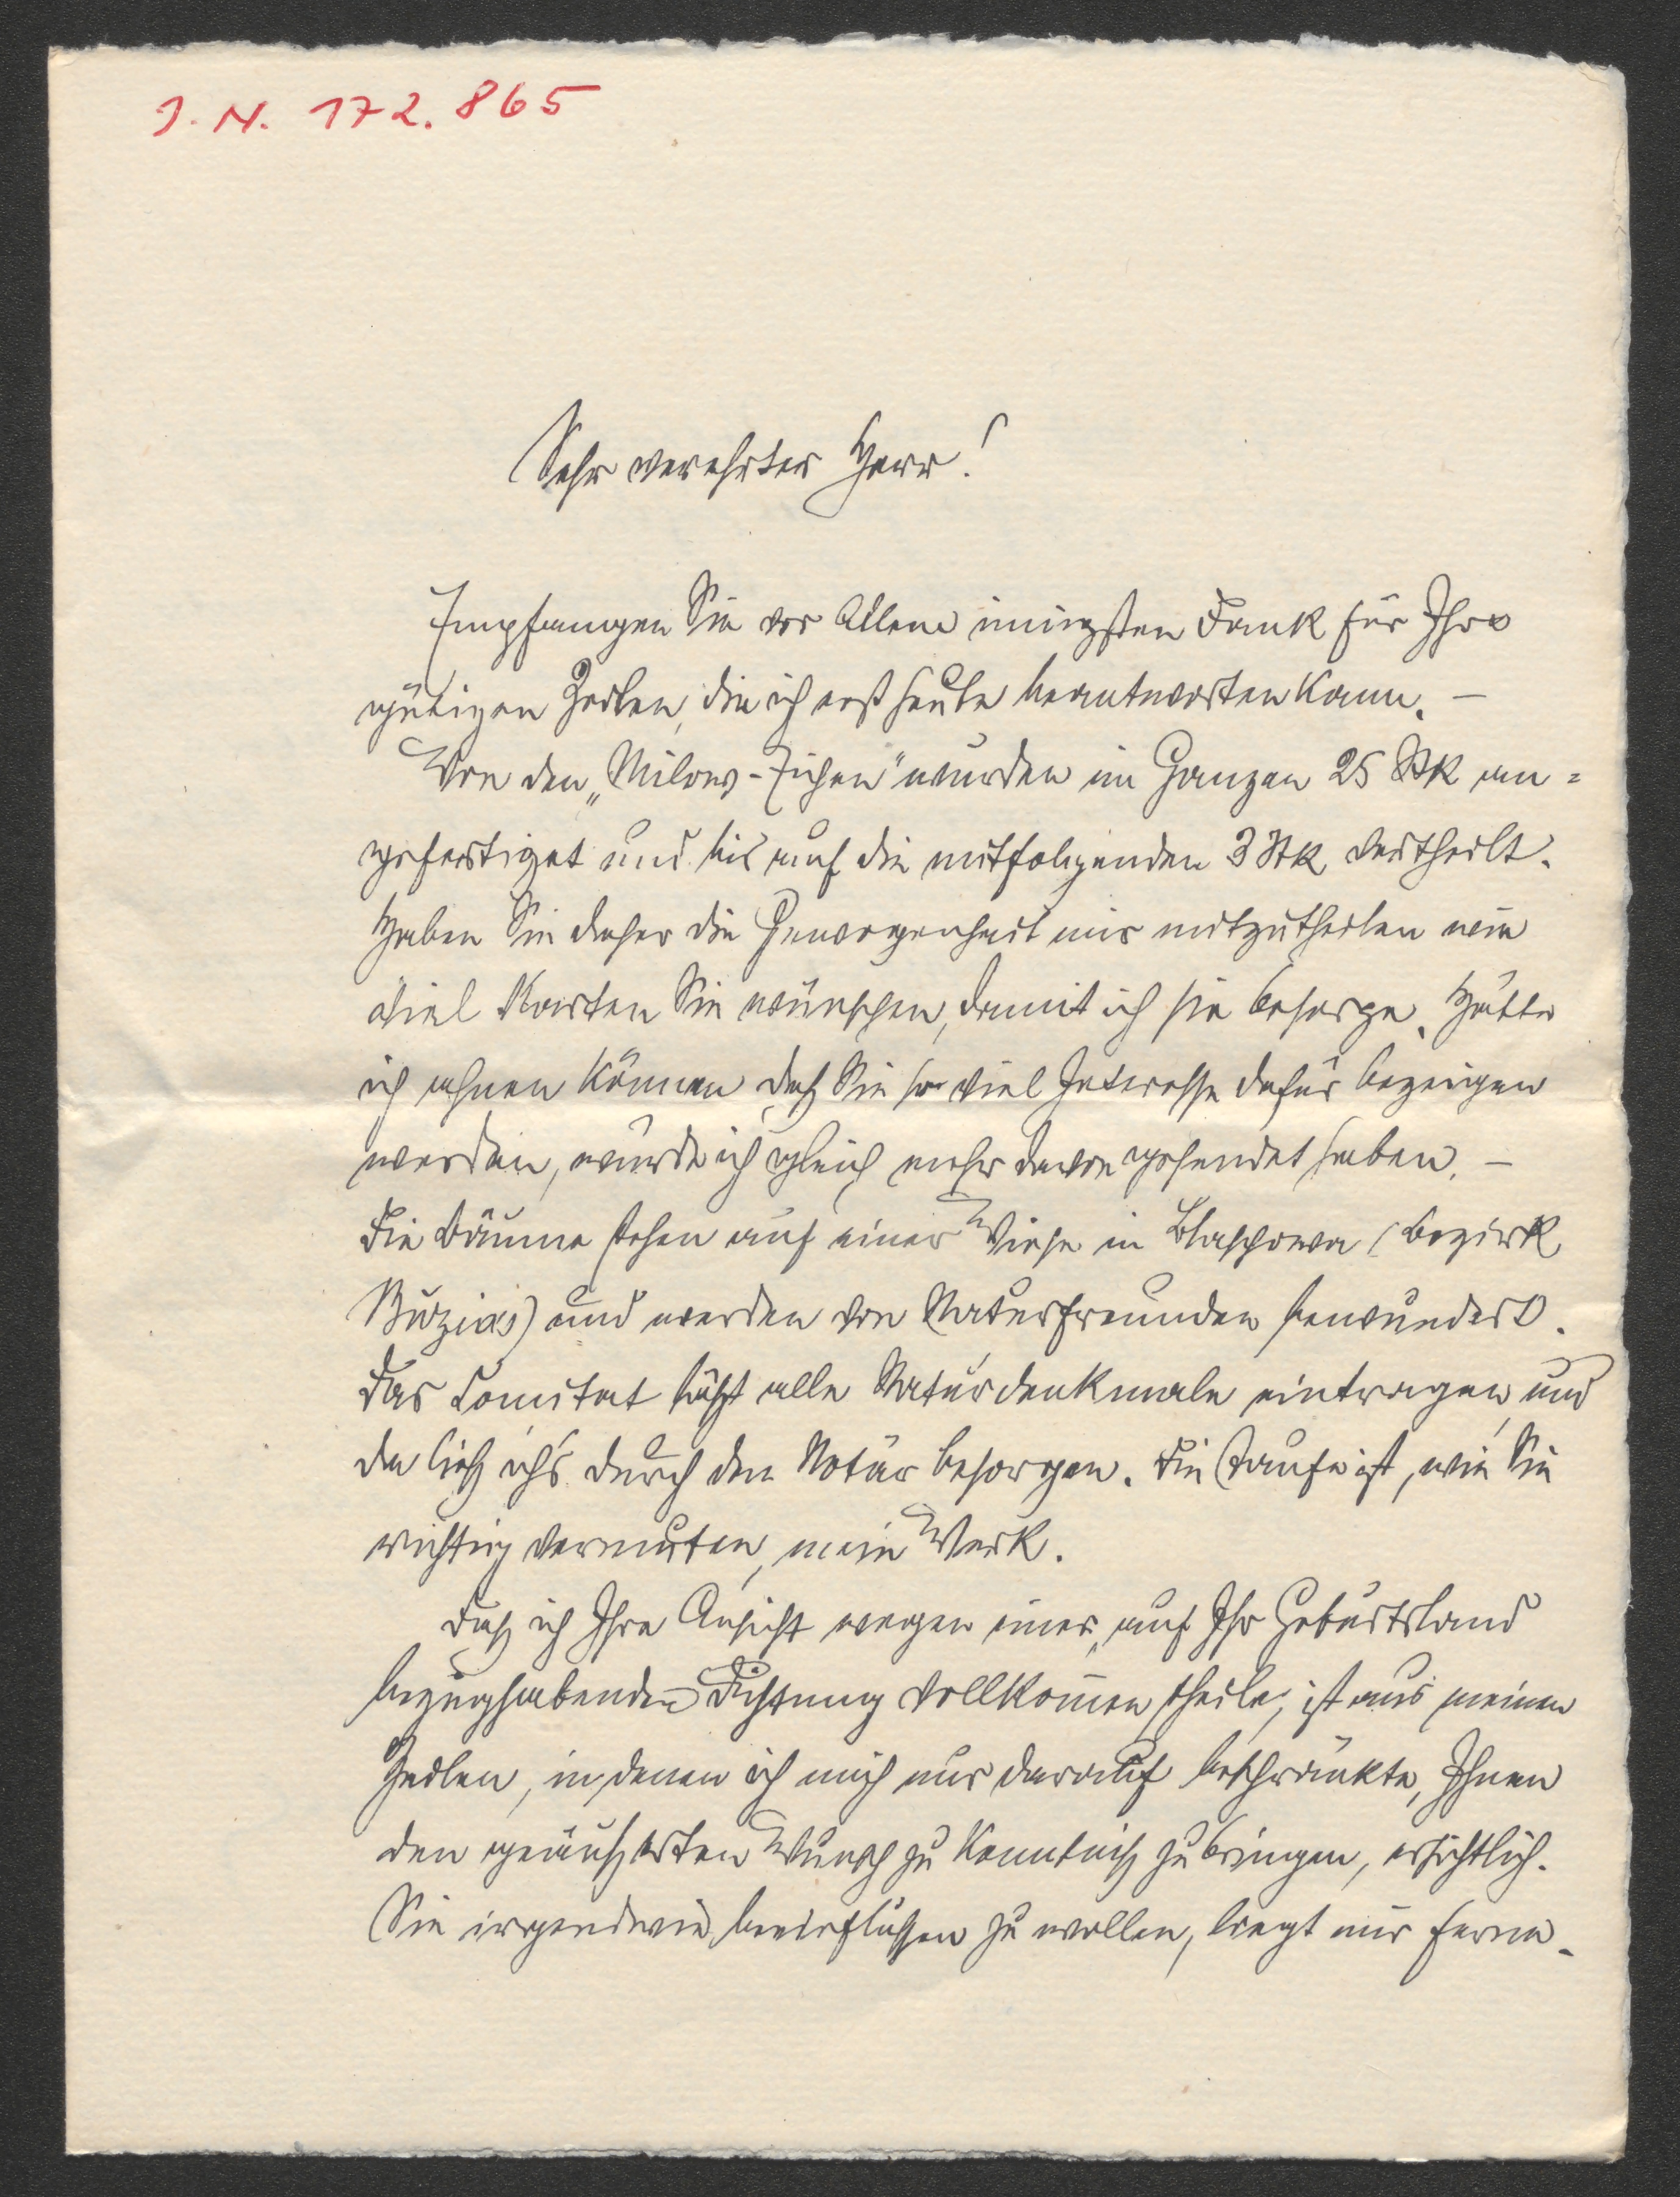 I. N. 172.865
Sehr verehrter Herr!
Empfangen Sie vor Allem innigsten Dank für Ihre
gütigen Zeilen, die ich erst heute beantworten kann. –
Von den „Milow-Eichen" wurden im Ganzen 25 Stk an=
gefertiget und bis auf die mitfolgenden 3 Stk vertheilt.
Haben Sie daher die Gewogenheit mir mitzutheilen wie
viel Karten Sie wünschen, damit ich sie besorge. Hätte
ich ahnen können, daß Sie so viel Interesse dafür bezeigen
werden, würde ich gleich mehr davon gesendet haben. –
Die Bäume stehen auf einer Wiese in Blaschowa (Bezirk
Buziás) und werden von Naturfreunden bewundert.
Das Comitat läßt alle Naturdenkmale eintragen und
da ließ ich's durch den Notär besorgen. Die Taufe ist, wie Sie
richtig vermuten, mein Werk.
Daß ich Ihre Ansicht wegen einer, auf Ihr Geburtsland
bezughabenden Dichtung vollkom̄en theile, ist aus meinen
Zeilen, in denen ich mich nur darauf beschränkte, Ihnen
den geäußerten Wunsch zu Kenntniß zu bringen, ersichtlich.
Sie irgendwie beeinflußen zu wollen, liegt mir ferne.